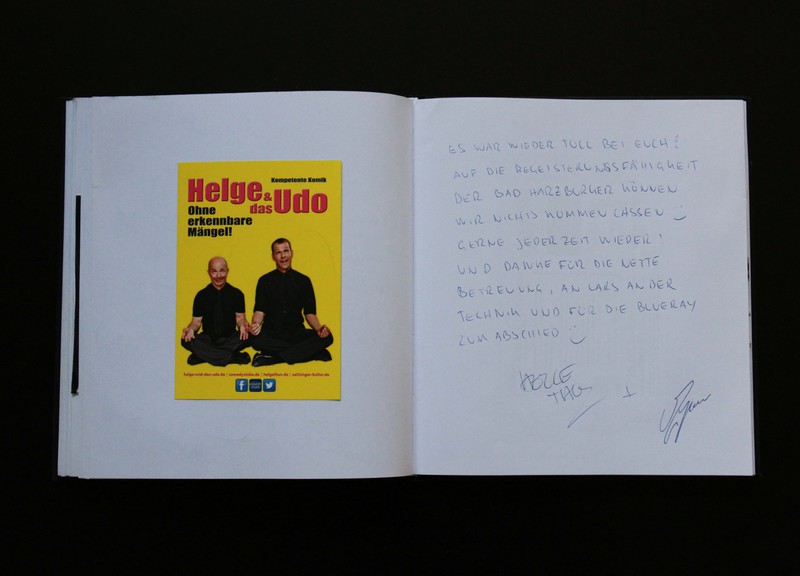 Kompetente Komik
Helge &
das Udo
Ohne
erkennbare
Mängel!
helge-und-das-udo.de | comedystube.de | helgethun.de | zeltinger-kultur.de
ES WAR WIEDER TOLL BEI EUCH!
AUF DIE BEGEISTERUNGSFÄHIGKEIT
DER BAD HARZBURGER KÖNNEN
WIR NICHTS KOMMEN LASSEN
GERNE JEDERZEIT WIEDER!
UND DANKE FÜR DIE NETTE
BETREUUNG, AN LARS AN DER
TECHNIK UND FÜR DIE BLUERAY
ZUM ABSCHIED
HELGE
THUN